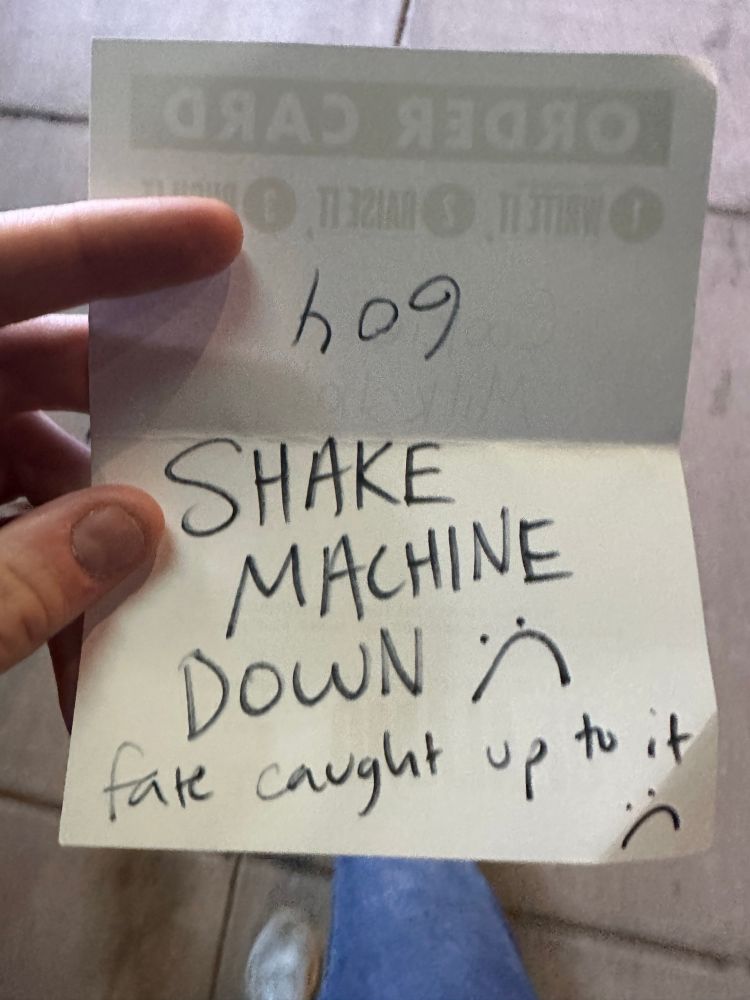 ORDER CARD
1 WRITE IT, 2 RAISE IT, 3
604
SHAKE
MACHINE
DOWN :(
fate caught up to it
:(